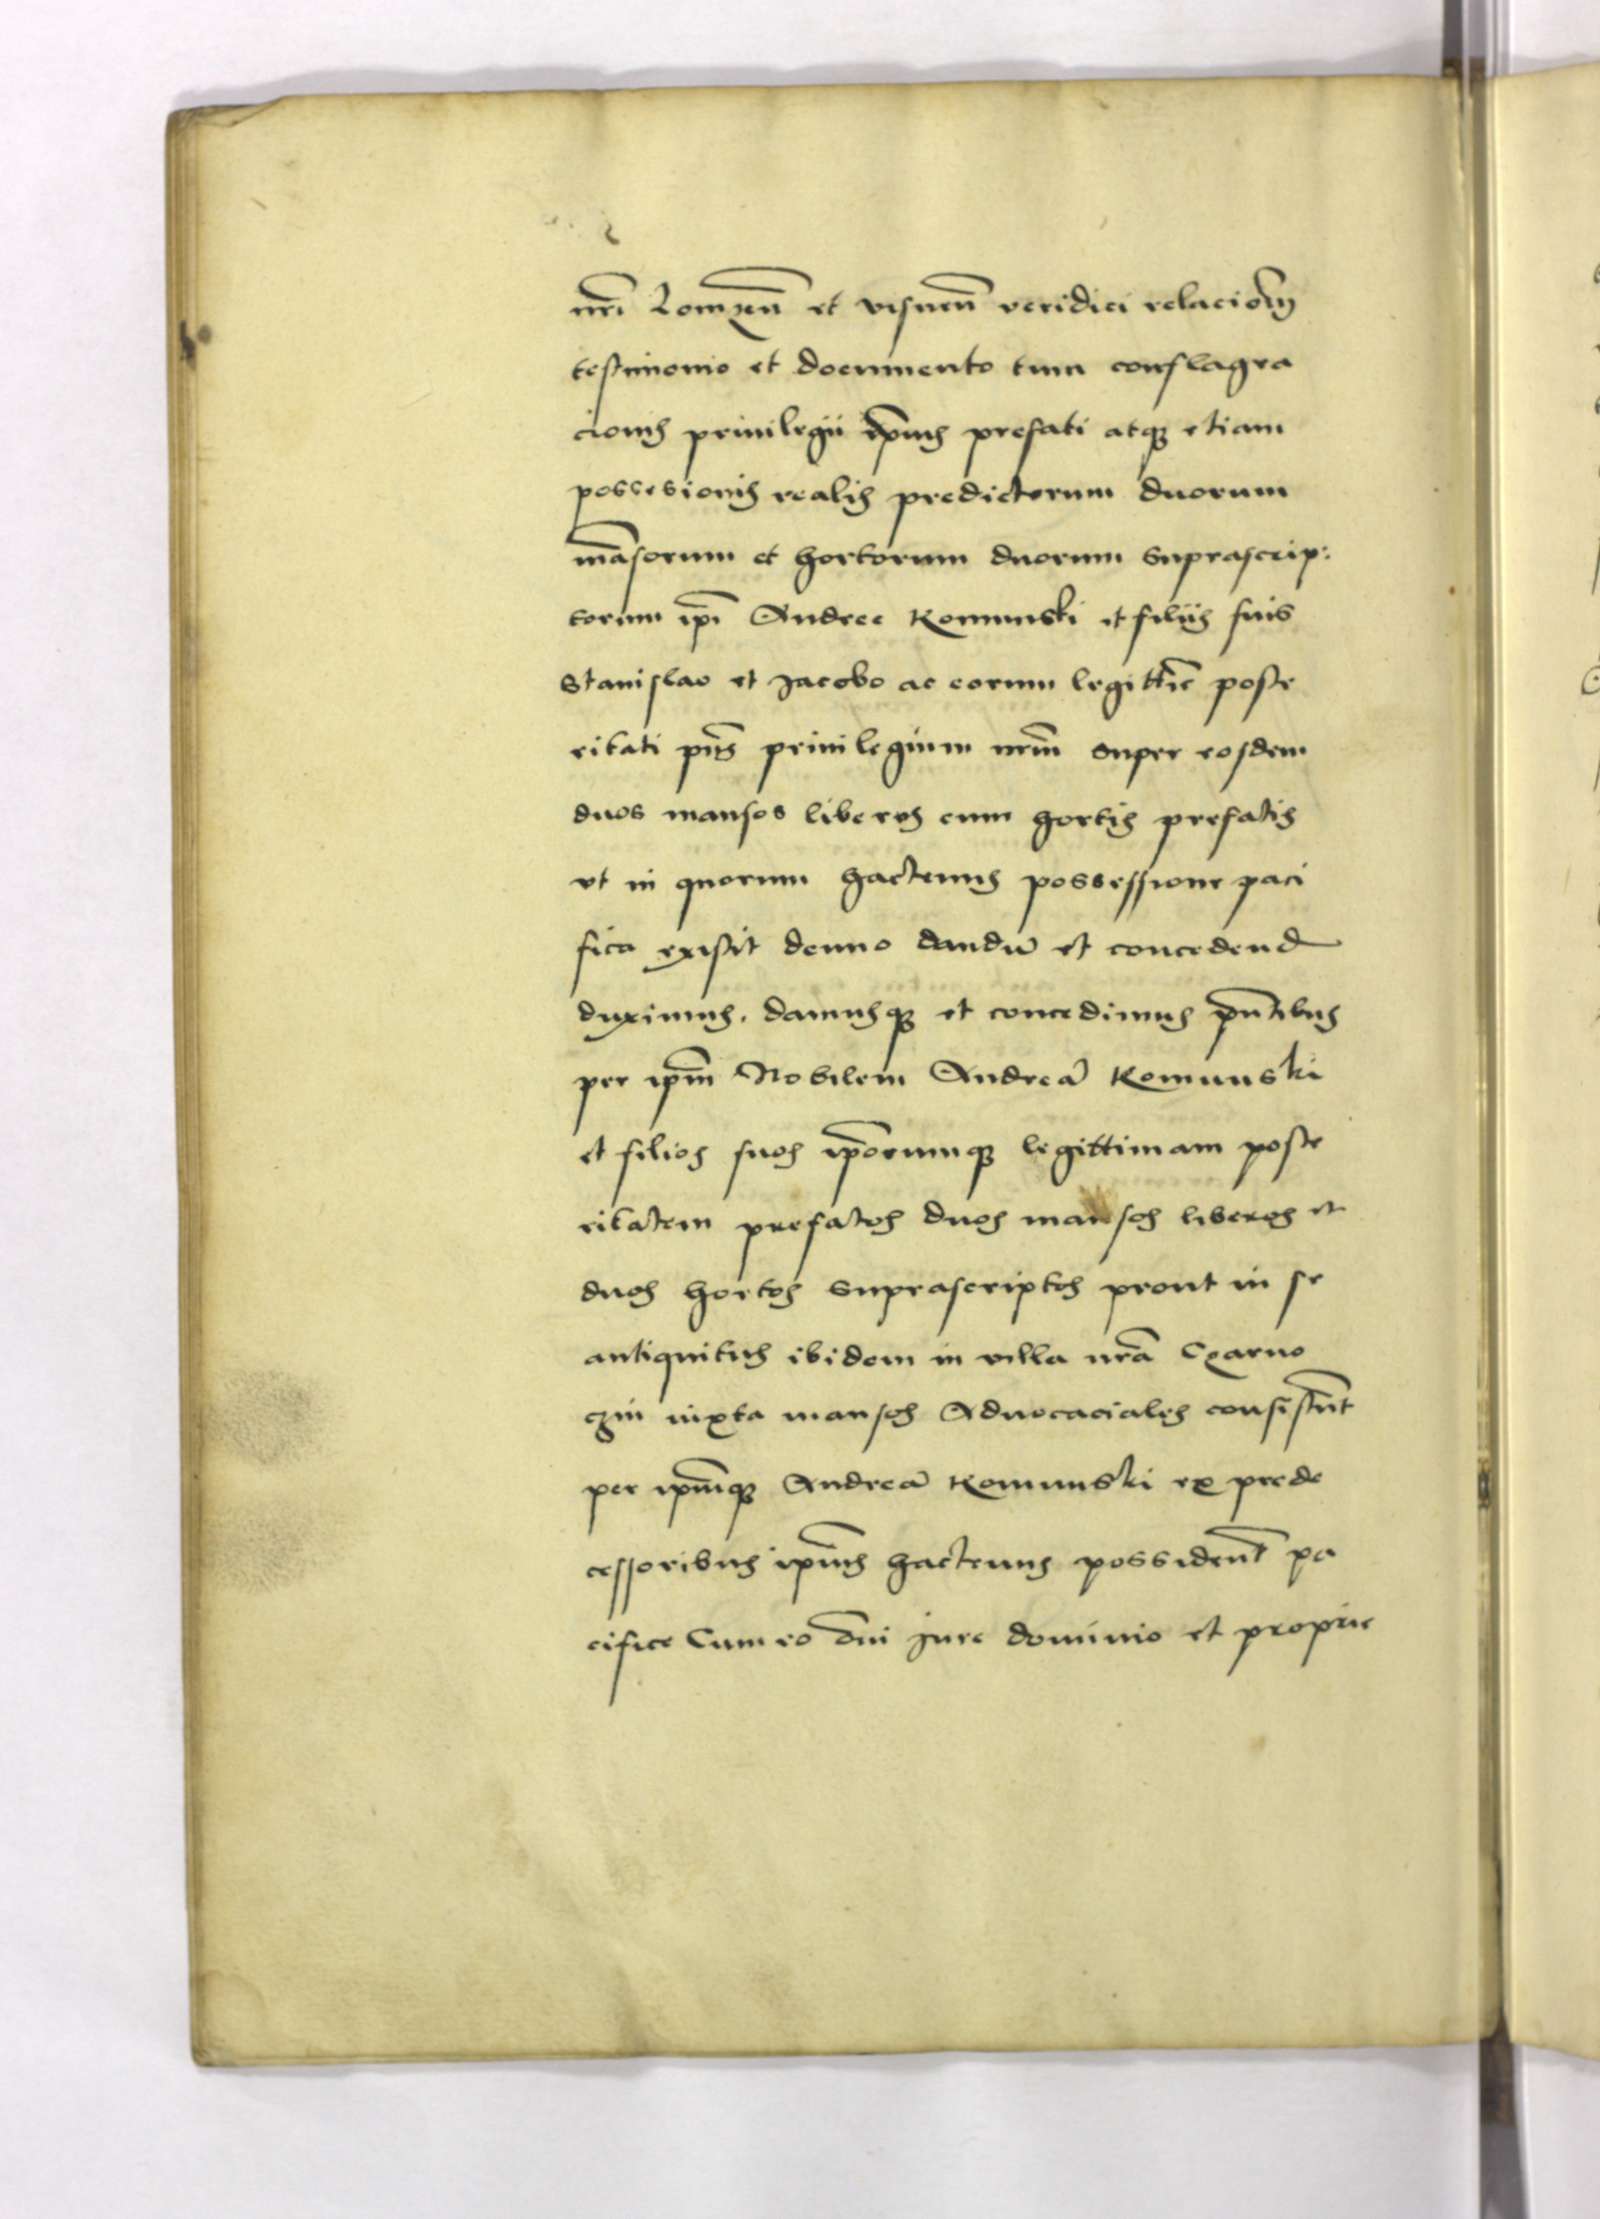 nr̃i Lomzeñ et visneñ veridici relacioñ
testimonio et documento tum conflagra
cionis privilegii ip̃ius prefati atq etiam
possesionis realis predictorum duorum
mãsorum et hortorum duorum suprascrip:
torum ip̃i Andree Komunski et filiis suis
Stanislao et Jacobo ac eorum legittĩe poste
ritati pñs privilegium nr̃m super eosdem
duos mansos liberos cum hortis prefatis
ut in quorum hactenus possessione paci
fica existit denuo dandũ et concedend
duximus. damusq et concedimus pñtibus
per ip̃m Nobilem Andreã Komunski
et filios suos ip̃orumq legittimam poste
ritatem prefatos duos mansos liberos et
duos hortos suprascriptos prout in se
antiquitus ibidem in villa nr̃a Czarno
czin iuxta mansos Advocaciales consistũt
per ip̃mq Andreã Komunski ex prede
cessoribus ip̃ius hactenus possident̃ pa
cifice Cum eo õni jure dominio et proprie